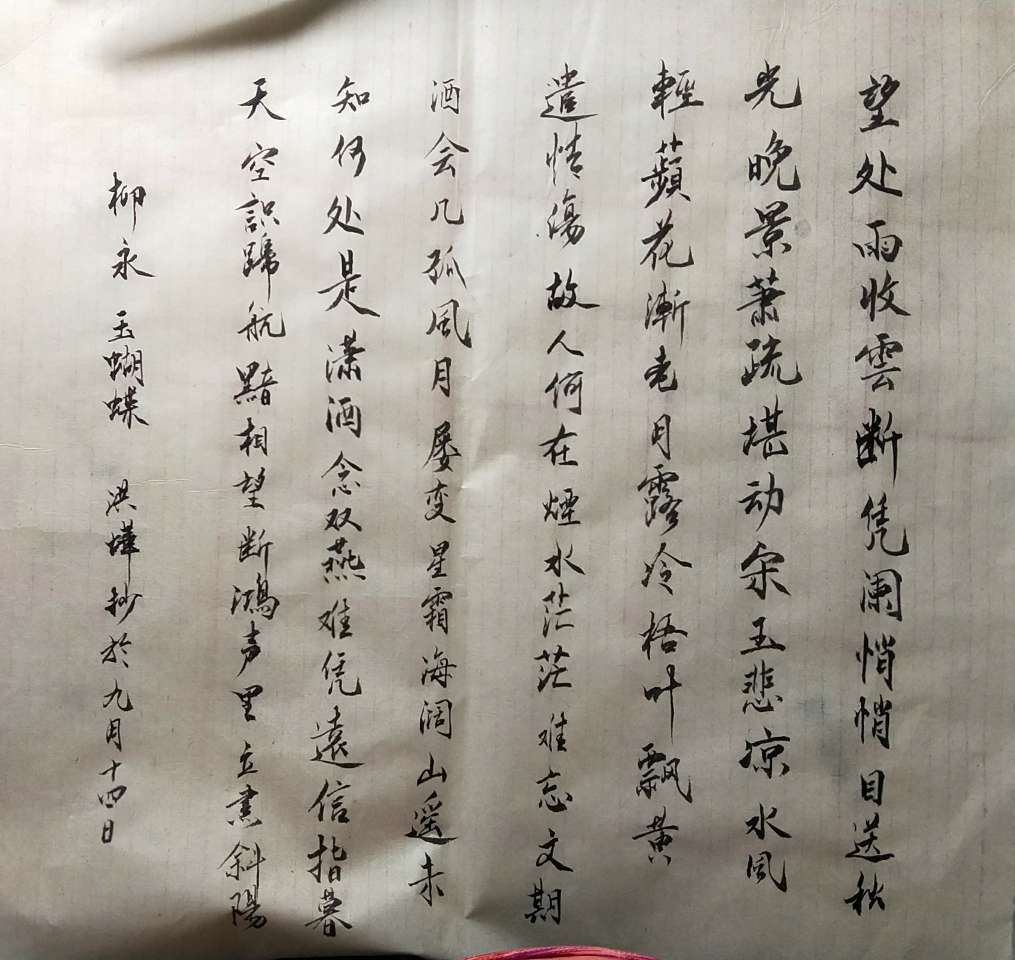 望处雨收雲断凭阑悄悄目送秋
光晚景萧疏堪动宋玉悲凉水风
輕蘋花漸老月露冷梧叶飘黄
遣情傷故人何在煙水茫茫难忘文期
酒会几孤風月屡变星霜海阔山遥未
知何处是潇酒念双燕难凭遠信指暮
天空識歸航黯相望断鴻声里立盡斜陽
柳永 玉蝴蝶 洪燁抄於九月十四日